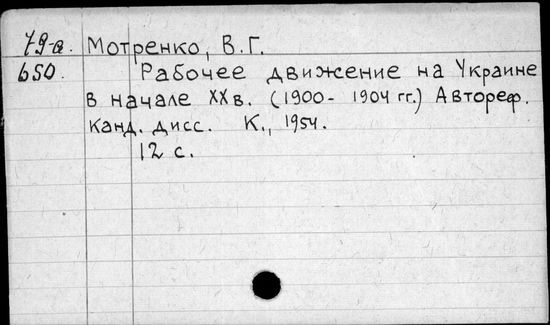 79-а. Мотренко, В.Г.
650. Рабочее движение на Украине
в начале XX в. (1900- 1904 гг.) Автореф.
канд. дисс. К., 1954.
12 с.